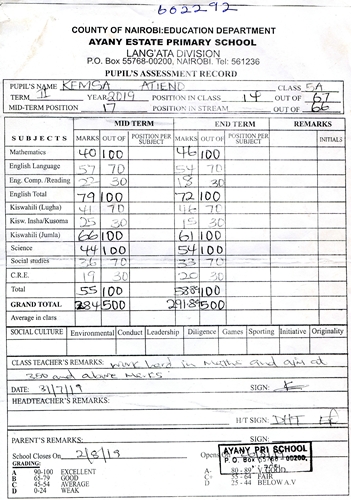 602292
COUNTY OF NAIROBI:EDUCATION DEPARTMENT
AYANY ESTATE PRIMARY SCHOOL
LANG'ATA DIVISION
P.O. Box 55768-00200, NAIROBI. Tel: 561236
PUPIL'S ASSESSMENT RECORD
PUPIL'S NAME KEMSA ATIENO CLASS 5A
TERM II YEAR 2019 POSITION IN CLASS 14 OUT OF 67
MID-TERM POSITION 17 POSITION IN STREAM OUT OF 66
MID TERM END TERM REMARKS
SUBJECTS MARKS OUT OF POSITION PER SUBJECT MARKS OUT OF POSITION PER SUBJECT INITIALS
Mathematics 40 100 46 100
English Language 57 70 54 70
Eng. Comp. /Reading 22 30 18 30
English Total 79 100 72 100
Kiswahili (Lugha) 41 70 46 70
Kisw. Insha/Kusoma 25 30 15 30
Kiswahili (Jumla) 66 100 61 100
Science 44 100 54 100
Social studies 36 70 33 70
C.R.E. 19 30 20 30
Total 55 100 100
GRAND TOTAL 284 500 291 500
Average in class
SOCIAL CULTURE Environmental Conduct Leadership Diligence Games Sporting Initiative Originality
CLASS TEACHER'S REMARKS: Work hard in Maths and aim at
350 and above Marks
DATE: 31/7/19 SIGN:
HEADTEACHER'S REMARKS:
H/T SIGN: D/HT
PARENT'S REMARKS: SIGN:
School Closes On 2/8/19 Opens
AYANY PRI SCHOOL
P. O. Box 55768 - 00200,
GRADING:
A 90-100 EXCELLENT A- 80-89 V.GOOD
B 65-79 GOOD C- 55-64 FAIR
C 45-54 AVERAGE D- 25-44 BELOW A.V
D 0-24 WEAK